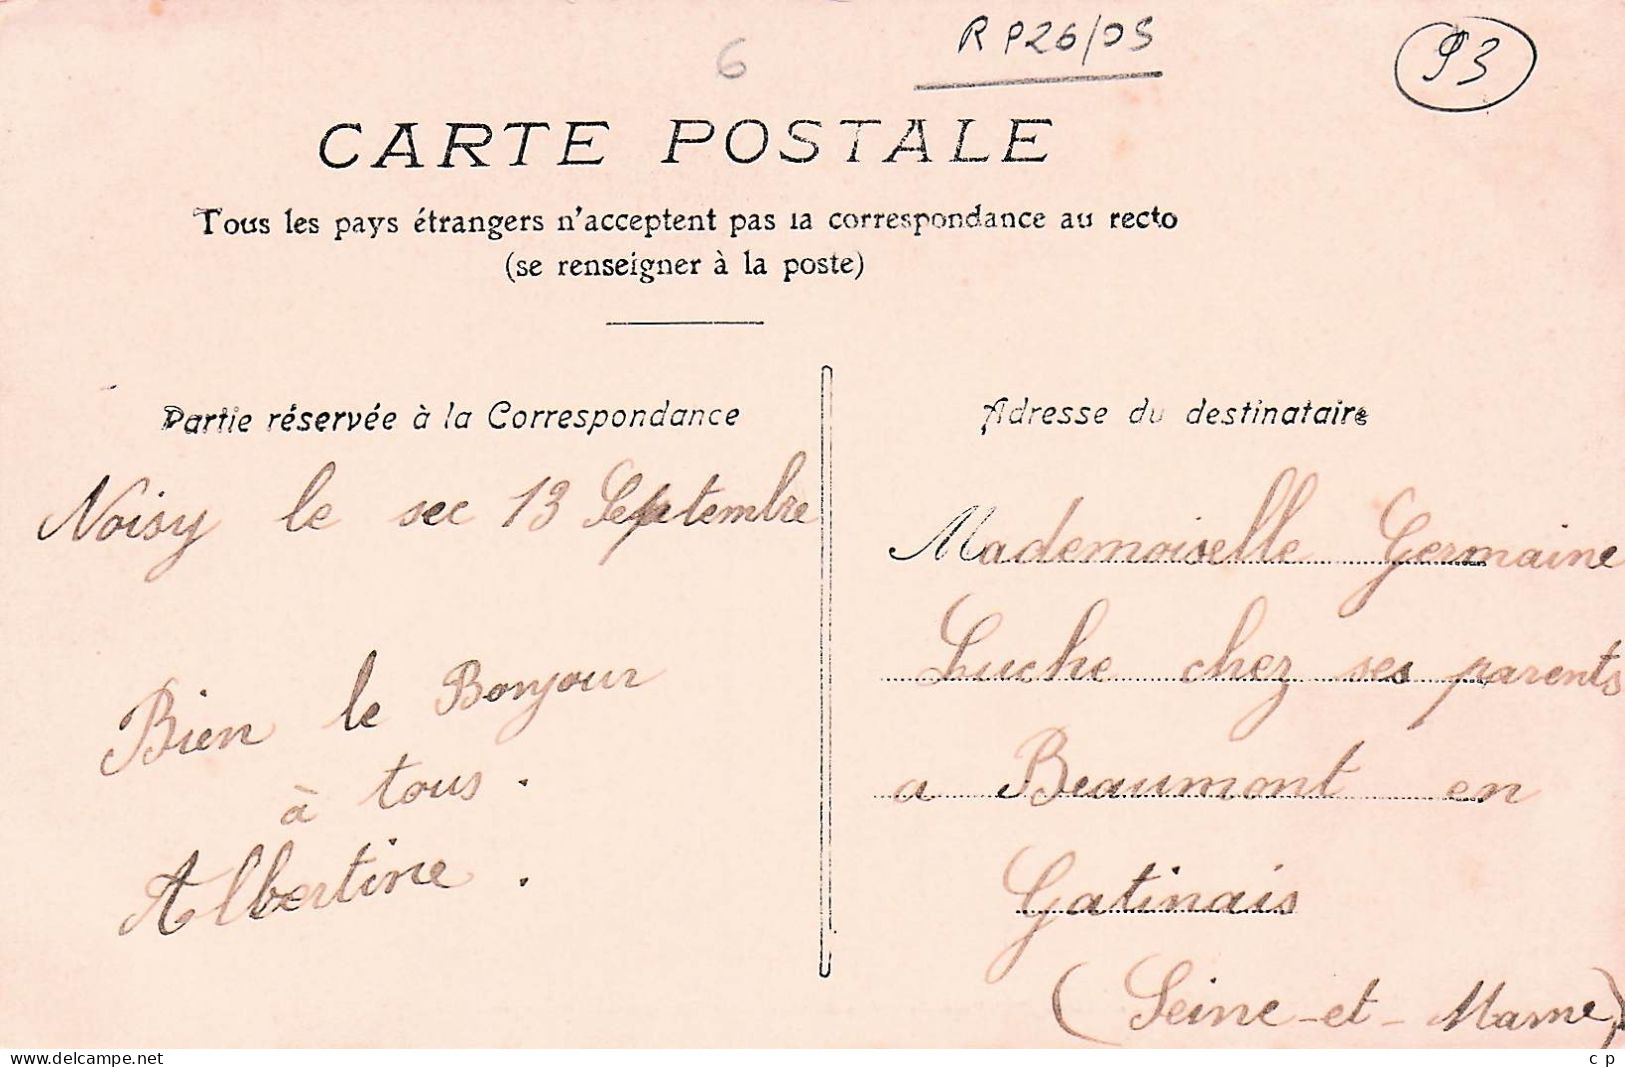 6
RP26/05
93
CARTE POSTALE
Tous les pays étrangers n'acceptent pas la correspondance au recto
(se renseigner à la poste)
Partie réservée à la Correspondance
Noisy le sec 13 Septembre
Bien le Bonjour
à tous.
Albertine.
Adresse du destinataire
Mademoiselle Germaine
Luche chez ses parents
a Beaumont en
Gatinais
(Seine-et-Marne)
www.delcampe.net
c p